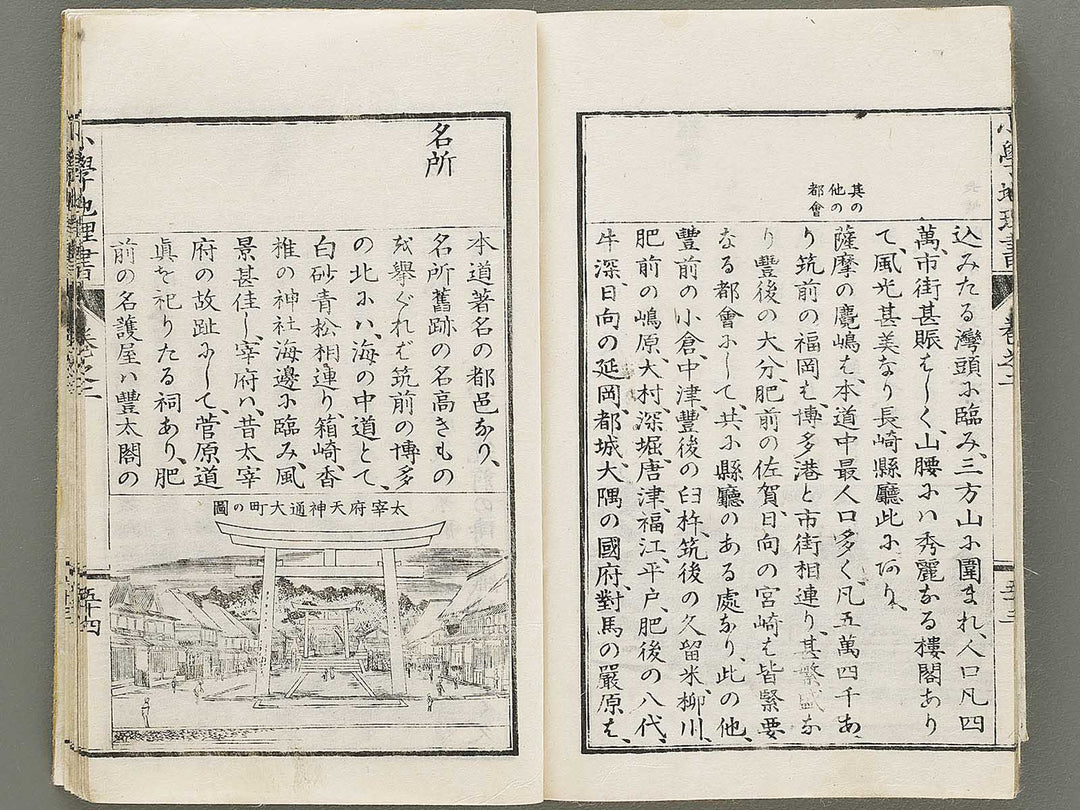 其の
他の
都會
込みたる灣頭に臨み、三方山に圍まれ、人口凡四
萬、市街甚賑はしく、山腰にハ秀麗なる樓閣あり
て、風光甚美なり長崎縣廳此に在り、
薩摩の麑嶋は、本道中最人口多く、凡五萬四千あ
り筑前の福岡は、博多港と市街相連り、甚繁盛な
り豐後の大分、肥前の佐賀、日向の宮崎は皆緊要
なる都會にして、共に縣廳のある處なり、此の他、
豐前の小倉、中津、豐後の臼杵、筑後の久留米、柳川、
肥前の嶋原、大村、深堀、唐津、福江、平戸、肥後の八代、
牛深、日向の延岡、都城、大隅の國府、對馬の嚴原は、
小學地理書
卷之二
名所
本道著名の都邑なり、
名所舊跡の名高きもの
を擧ぐれば筑前の博多
の北にハ、海の中道とて、
白砂青松相連り、箱崎、香
椎の神社海邊に臨み、風
景甚佳し、宰府ハ、昔太宰
府の故趾にして、菅原道
眞を祀りたる祠あり、肥
前の名護屋ハ豐太閤の
太宰府天神通大町の圖
小學地理書
卷之二
五十四